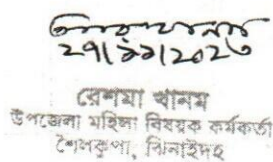 ২৭/১১/২০২৩
রেশমা খানম
উপজেলা মহিলা বিষয়ক কর্মকর্তা
শৈলকুপা, ঝিনাইদহ